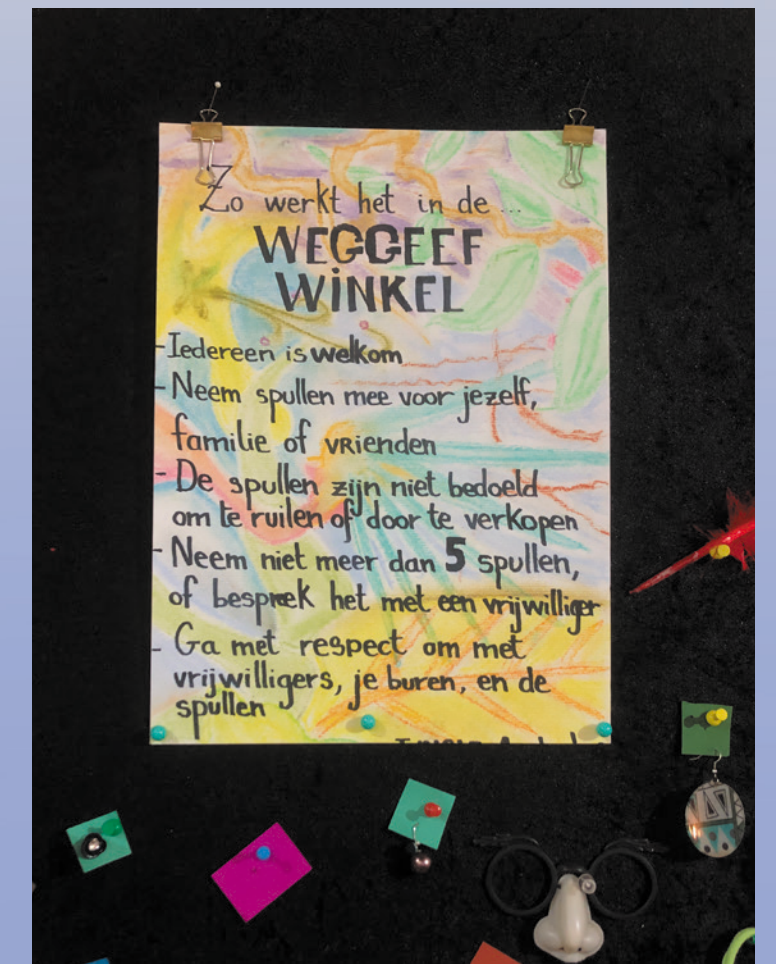 Zo werkt het in de ...
WEGGEEF
WINKEL
- Iedereen is welkom
- Neem spullen mee voor jezelf,
familie of vrienden
- De spullen zijn niet bedoeld
om te ruilen of door te verkopen
- Neem niet meer dan 5 spullen,
of bespreek het met een vrijwilliger
- Ga met respect om met
vrijwilligers, je buren, en de
spullen